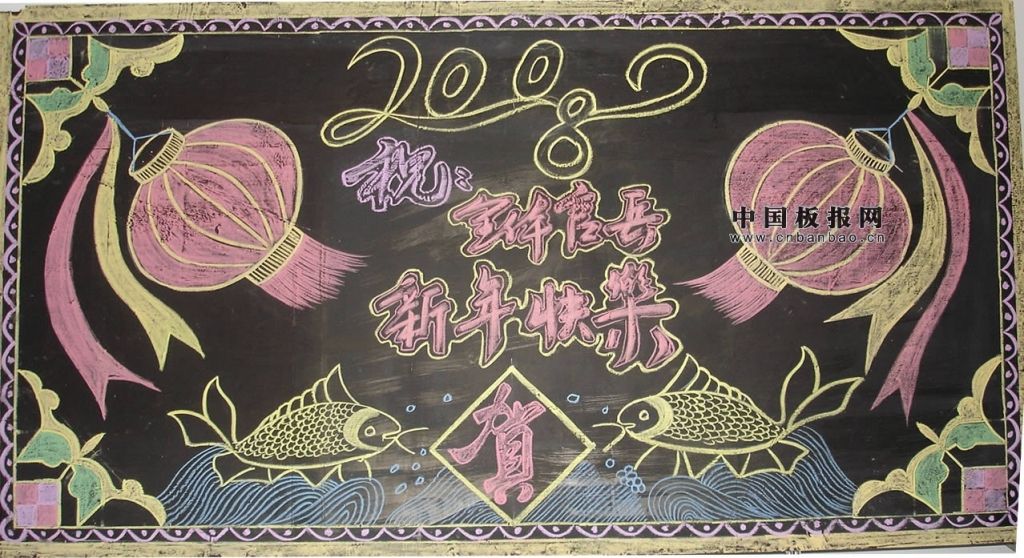 2008
祝:
全体官兵
新年快樂
賀
中国板报网
www.cnbanbao.cn